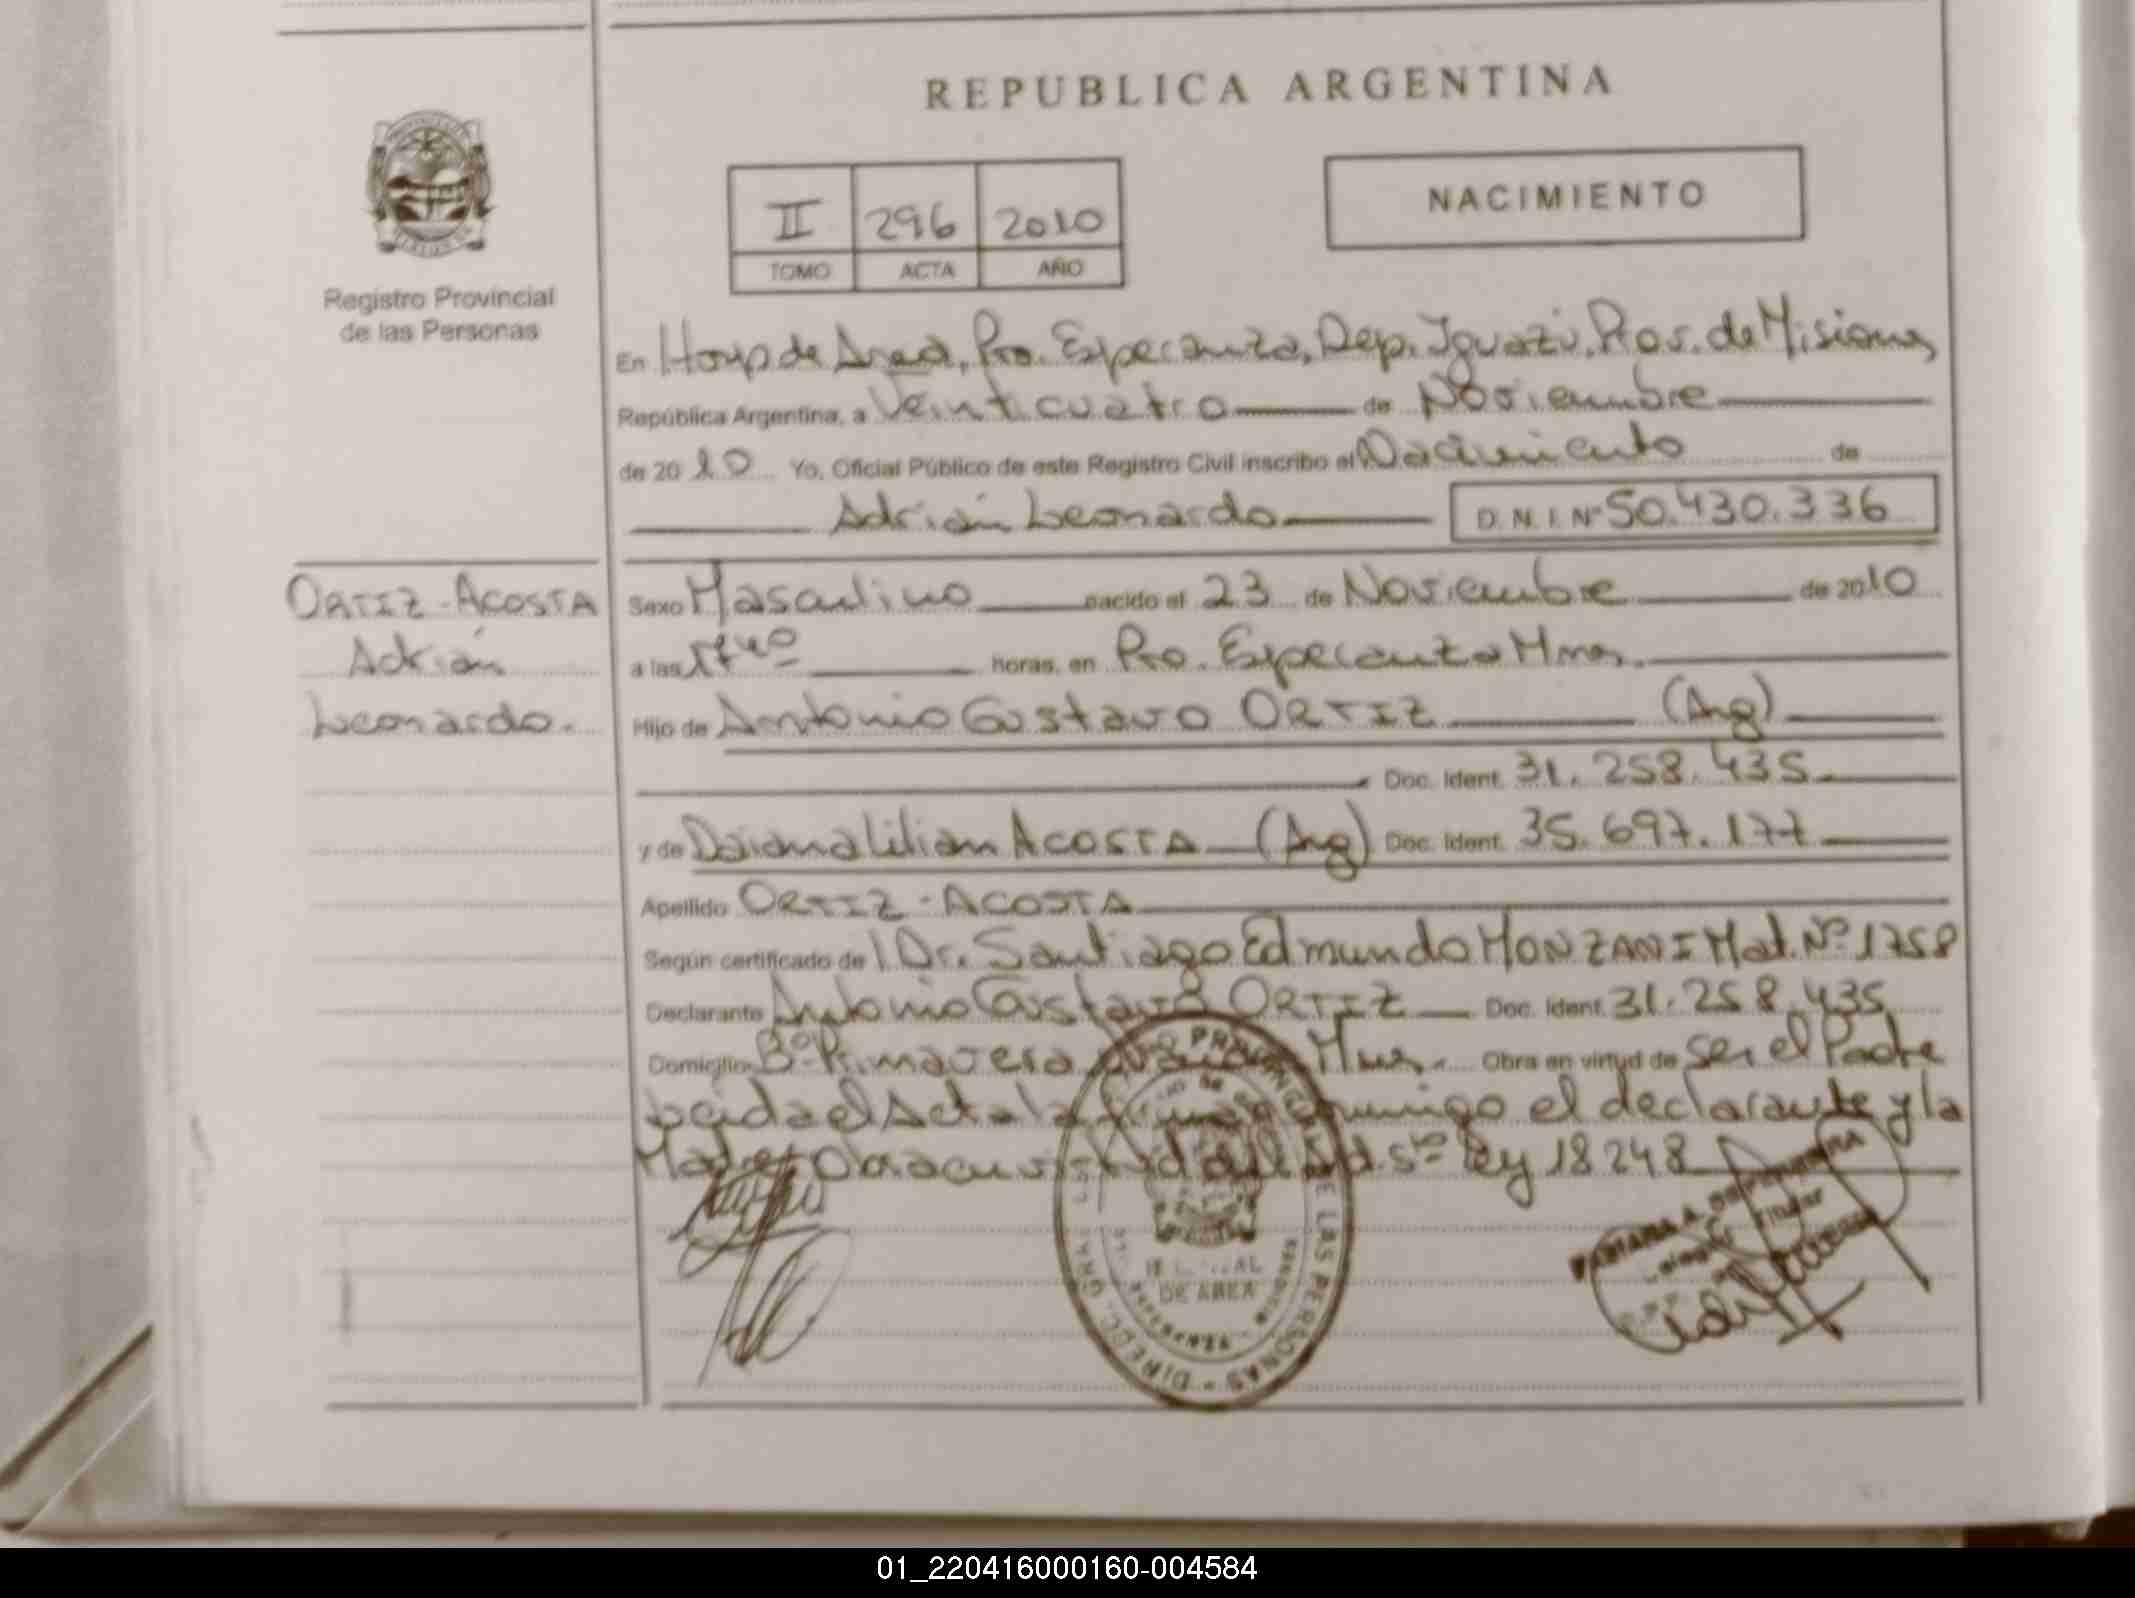 REPUBLICA ARGENTINA
NACIMIENTO
II 296 2010
TOMO ACTA AÑO
Registro Provincial
de las Personas
En Hosp de Area, Pto. Esperanza, Dep. Iguazú, Prov. de Misiones
República Argentina, a Veinticuatro de Noviembre
de 2010 Yo, Oficial Público de este Registro Civil inscribo el Nacimiento de
Adrián Leonardo D.N.I. Nº 50.430.336
ORTIZ - ACOSTA
Adrián
Leonardo.
Sexo Masculino nacido el 23 de Noviembre de 2010
a las 17 40 horas, en Pto. Esperanza Mnes.
Hijo de Antonio Gustavo ORTIZ (Arg)
Doc. Ident. 31.258.435
y de Daiana Lilian ACOSTA (Arg) Doc. Ident. 35.697.177
Apellido ORTIZ - ACOSTA
Según certificado de Dr. Santiago Edmundo MONZANI Mat. Nº 1758
Declarante Antonio Gustavo ORTIZ Doc. Ident. 31.258.435
Domicilio Bº Primavera Mnes. Obra en virtud de ser el Padre
Leida el Acta la conmigo el declarante y la
Madre ley 18248
DE LAS PERSONAS - DIREC. GRAL.
DE AREA
Titular
01_220416000160-004584